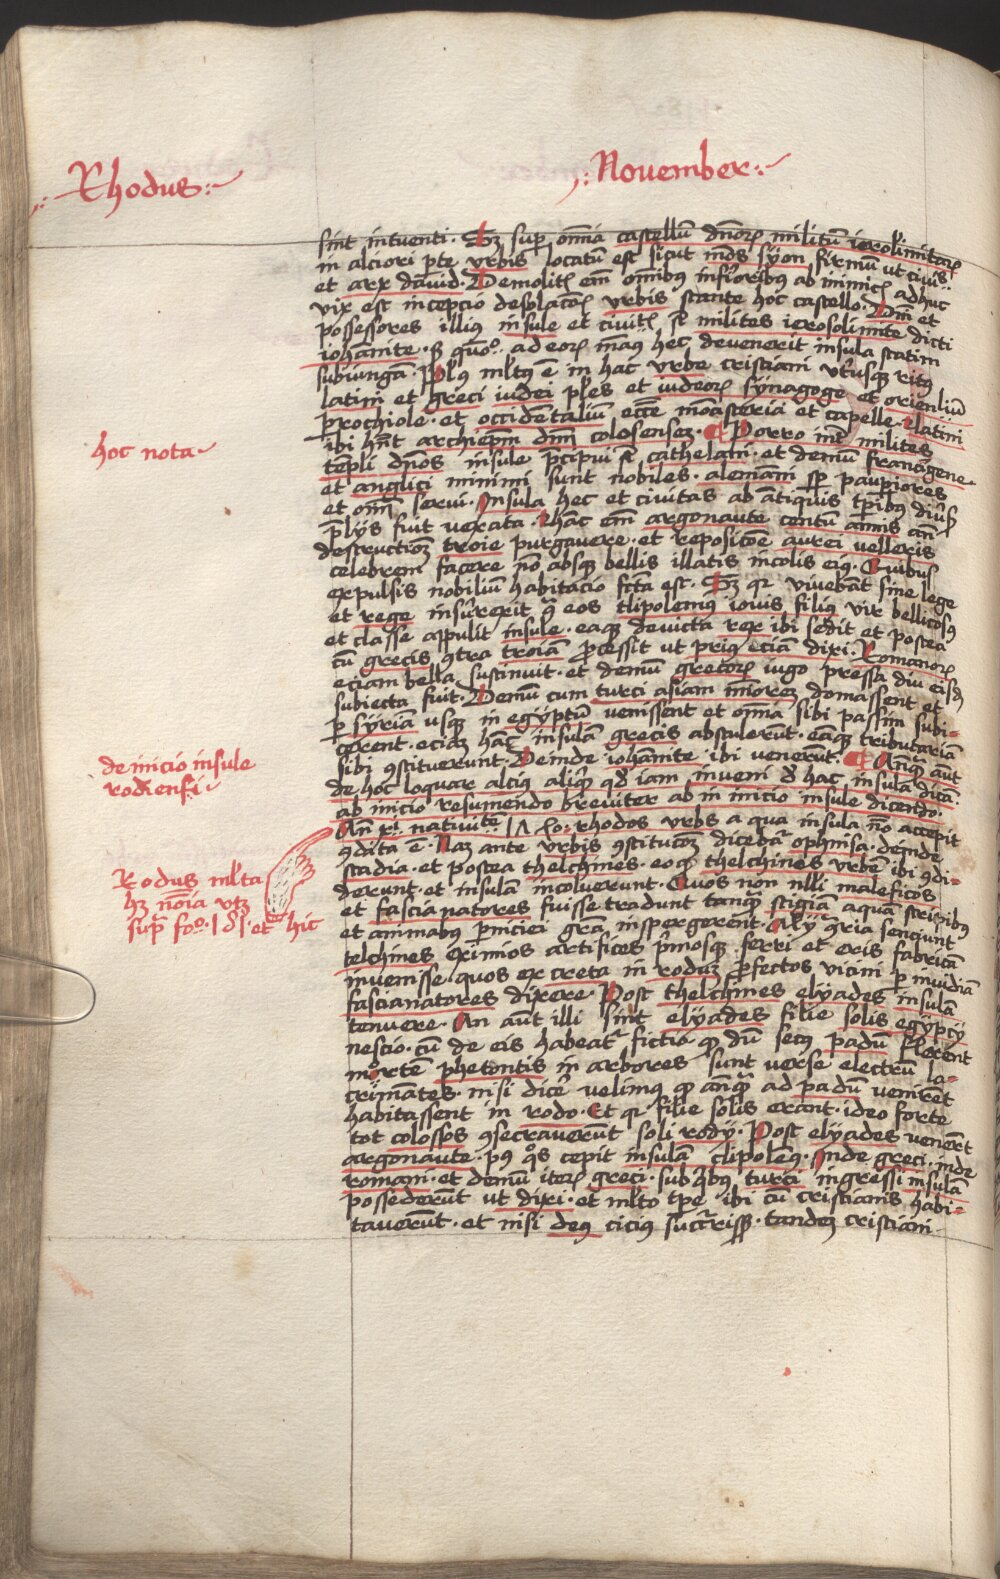 Rhodus
November
sint intuenti. Sz sup om̄ia castellū dn̄oꝝ militū ierolimitaꝝ
in alciori ꝑte vrbis locatū est sicut mōs syon firmū ut ciuis
et arx dauid. Demolitꝭ em̄ om̄ibus infīoribus ab inimicꝭ adhuc
vix est incepcio desolacōꝭ vrbis stante hoc castello. Dn̄i et
possessores illiꝰ insule et ciuitꝭ sꝭ milites ierosolimite dicti
iohānite. ad eoꝝ manꝰ hec devenerit insula statim
subiungā. ē in hac vrbe cristiani vtriusqꝫ ritꝰ
latini et greci iudei ples et iudeoꝝ synagoge et orienliū
ꝑrochiole. et occidētaliū ecc̄e monasteria et capelle. Latini
ibi hn̄t archiepm̄ dn̄m colosensez. Porro int milites
tēpli dn̄os insule p̄cipui sꝭ cathelani. et demū francigene
et anglici minimi sunt nobiles. alemāni sꝑ pauꝑiores
et om̄i serui. Insula hec et ciuitas ab ātiquis tꝑibus diūsꝭ
p̄lijs fuit vexata. Hāc em̄ argonaute centū annis an̄
destructiōꝫ troie purgauere. et repositōe aurei velleris
celebrem facere nō absqꝫ bellis illatis incolis eiꝰ. Quibus
expulsis nobiliū habitacio fc̄ta est. Sz qꝛ viuebāt sine lege
et rege insurrexit eos tlipolemꝰ iouis filiꝰ vir bellicosꝰ
et classe appulit insule. eaqꝫ deuicta rex ibi sedit et postea
cū grecis ꝯtra troiam ꝓcessit ut priꝰ eciā dixi. Romanoꝝ
eciam bella sustinuit. et demū grecoꝝ iugo pressa diu eisdꝫ
subiecta fuit. Demū cum turci asiam mīorez domassent et
ꝑ syriam usqꝫ in egyptū venissent et om̄ia sibi passim subi-
cerent. eciaꝫ hāc insulā grecis abstulerūt. eaqꝫ tributariā
sibi ꝯstituerunt. Deinde iohānite ibi venerūt. Anqꝫ aut
de hoc loquar alciꝰ aliqꝫ qd iam inueni d hac insula dicā.
ab inicio resumendo breuiter ab in inicio insule dicendo.
An̄ xꝭ natiuitē rhodos vrbs a qua insula nō accepit
ꝯdita ē. Naꝫ ante vrbis ꝯstitucōꝫ dicebat ophiusa. deinde
stadia. et postea thelchines. eo qꝫ thelchines vrbē ibi ꝯdi-
derunt. et insulā incoluerunt. Quos non nlli maleficos
et fascianatores fuisse tradunt tanqꝫ stigiā aquā stirpibus
et animabus ꝑniciei grā inspergerent. Alij ꝯria senciunt
telchines eximios artifices primosqꝫ ferri et eris fabricā
inuenisse. quos ex creta in roduꝫ ꝓfectos vicini ꝑ inuidiā
fascianatores dixere. Post thelchines elyades insulā
tenuere. An aūt illi sint elyades filie solis egypcij
nescio. cū de eis habeat fictio qꝫ dū secus padū flerent
mortē phetontis in arbores sunt verse electrū la-
crimātes. nisi dicere velimꝰ qꝫ anqꝫ ad padū venirēt
habitassent in rodo. Et qꝛ filie solis erant. ideo forte
tot colossos ꝯsecrauerūt soli rodij. Post elyades venerūt
argonaute. pꝰ qos cepit insulā tlipolemꝰ. Inde greci. inde
romani. et demū iteꝝ greci. sub qbꝰ turci ingressi insulā
possederūt ut dixi. et mlto tpe ibi cū cristianis habi-
tauerūt. et nisi deꝰ ciciꝰ tandeꝫ cristiani
hoc nota
de inicio insule
rodiensi
Rodus mlta
hꝫ nōia vtꝫ
supra fo. et hic